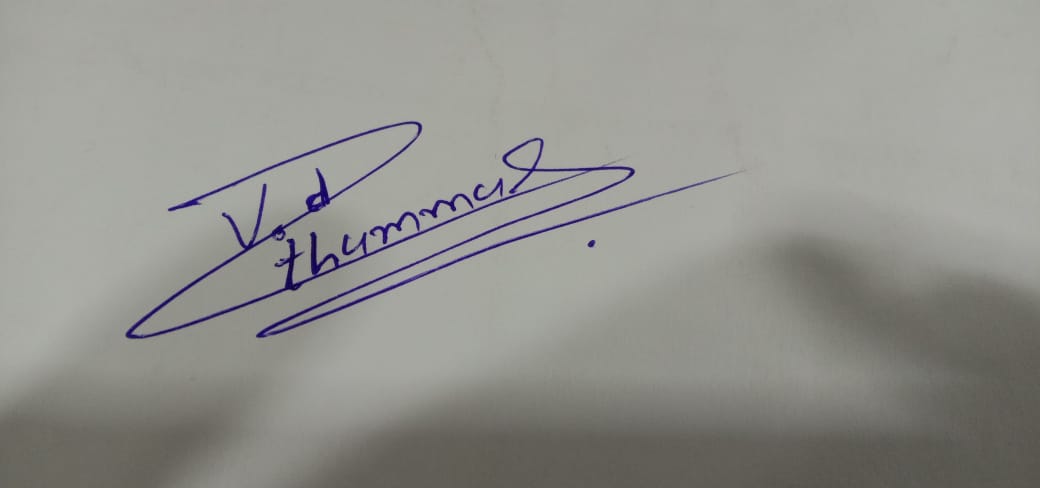 V.d
thummar